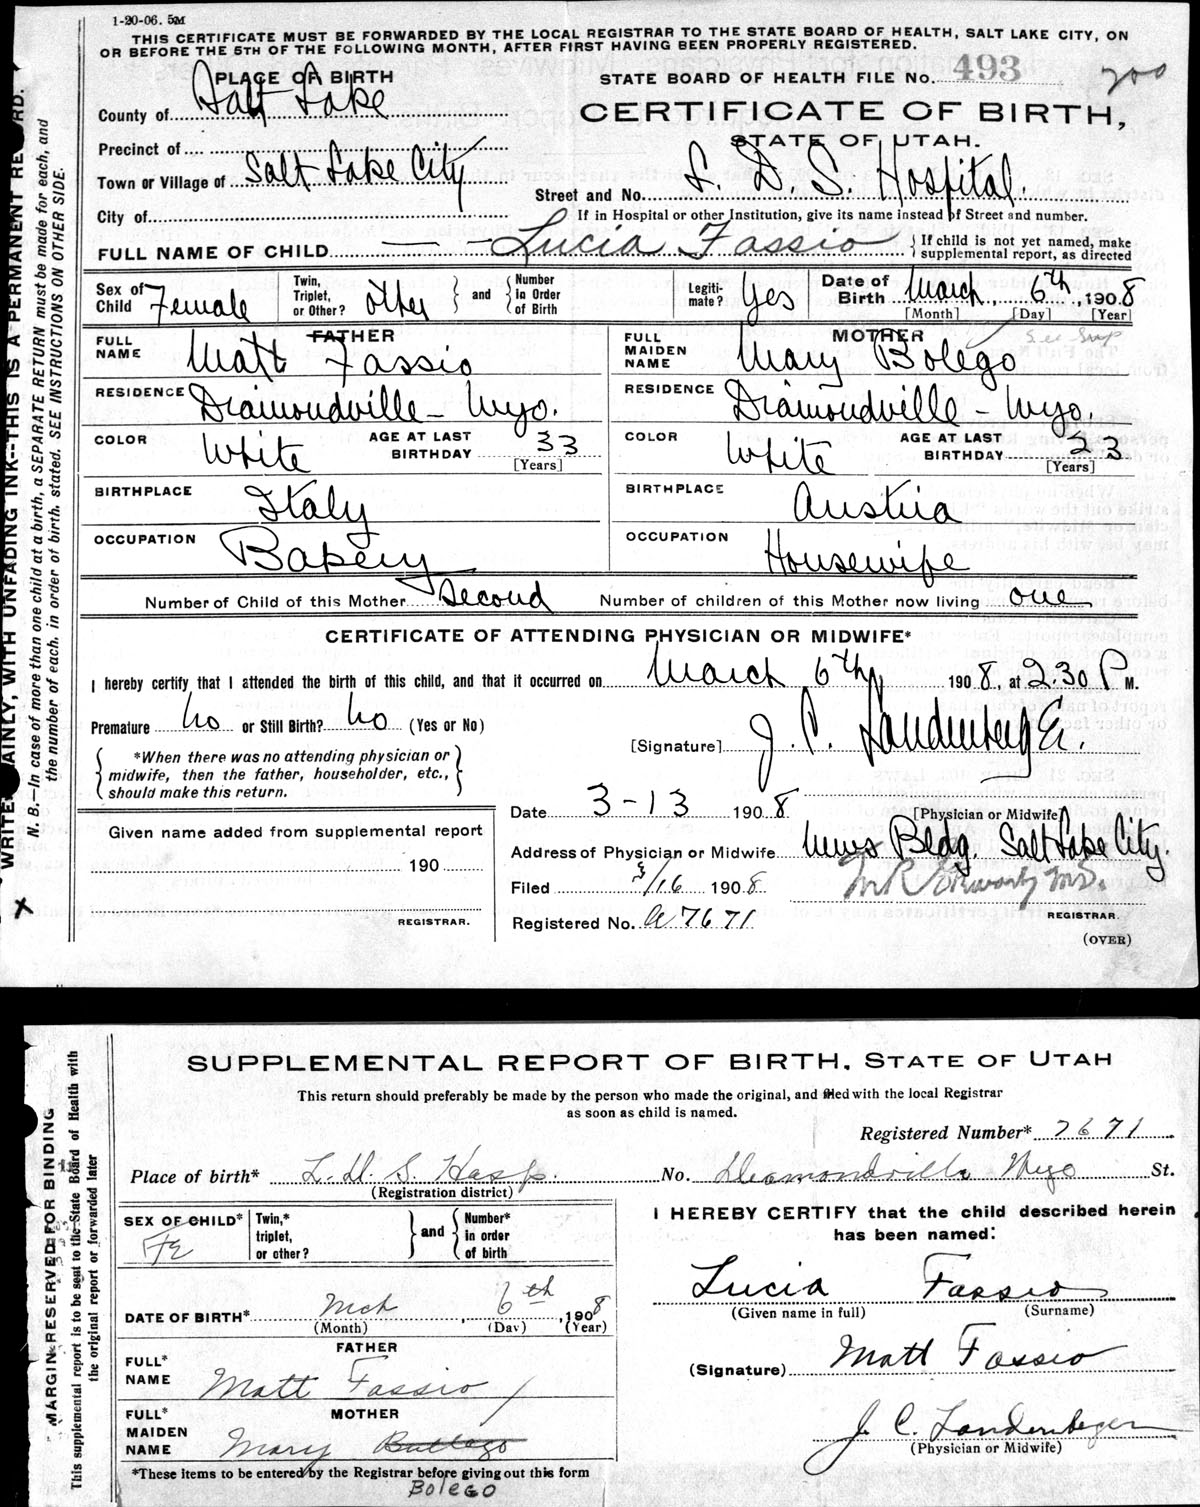 1-20-06. 5M
THIS CERTIFICATE MUST BE FORWARDED BY THE LOCAL REGISTRAR TO THE STATE BOARD OF HEALTH, SALT LAKE CITY, ON
OR BEFORE THE 5TH OF THE FOLLOWING MONTH, AFTER FIRST HAVING BEEN PROPERLY REGISTERED.
PLACE OF BIRTH
STATE BOARD OF HEALTH FILE No. 493
200
County of Salt Lake
CERTIFICATE OF BIRTH,
STATE OF UTAH.
Precinct of
Town or Village of Salt Lake City
Street and No. L. D. S. Hospital.
City of
If in Hospital or other Institution, give its name instead of Street and number.
FULL NAME OF CHILD Lucia Fassio
If child is not yet named, make supplemental report, as directed
Sex of Child Female
Twin, Triplet, or Other? other
and Number in Order of Birth
Legitimate? Yes
Date of Birth March 6th, 1908
[Month] [Day] [Year]
FATHER
FULL NAME Matt Fassio
RESIDENCE Diamondville - Wyo.
COLOR White AGE AT LAST BIRTHDAY 33
[Years]
BIRTHPLACE Italy
OCCUPATION Bakery
MOTHER
FULL MAIDEN NAME Mary Bolego
RESIDENCE Diamondville - Wyo.
COLOR White AGE AT LAST BIRTHDAY 23
[Years]
BIRTHPLACE Austria
OCCUPATION Housewife
Number of Child of this Mother Second Number of children of this Mother now living one
CERTIFICATE OF ATTENDING PHYSICIAN OR MIDWIFE*
I hereby certify that I attended the birth of this child, and that it occurred on March 6th, 1908, at 2.30 P M.
Premature no or Still Birth? no (Yes or No)
*When there was no attending physician or
midwife, then the father, householder, etc.,
should make this return.
[Signature] J. C. Landenberger.
[Physician or Midwife]
Date 3-13 1908
Given name added from supplemental report
190
REGISTRAR.
Address of Physician or Midwife News Bldg. Salt Lake City.
Filed 3/16 1908
REGISTRAR.
Registered No. a7671
(OVER)
WRITE PLAINLY, WITH UNFADING INK--THIS IS A PERMANENT RECORD.
N. B.—In case of more than one child at a birth, a SEPARATE RETURN must be made for each, and
the number of each, in order of birth, stated. SEE INSTRUCTIONS ON OTHER SIDE.
X
SUPPLEMENTAL REPORT OF BIRTH, STATE OF UTAH
This return should preferably be made by the person who made the original, and filed with the local Registrar
as soon as child is named.
Registered Number* 7671
Place of birth* L. D. S. Hosp. No. Diamondville Wyo St.
(Registration district)
SEX OF CHILD* Fe
Twin,* triplet, or other?
and Number* in order of birth
I HEREBY CERTIFY that the child described herein
has been named:
Lucia Fassio
(Given name in full) (Surname)
DATE OF BIRTH* Mch 6th, 1908
(Month) (Day) (Year)
FATHER
FULL* NAME Matt Fassio
(Signature) Matt Fassio
MOTHER
FULL* MAIDEN NAME Mary Bolego
J. C. Landenberger
(Physician or Midwife)
*These items to be entered by the Registrar before giving out this form
MARGIN RESERVED FOR BINDING
This supplemental report is to be sent to the State Board of Health with
the original report or forwarded later